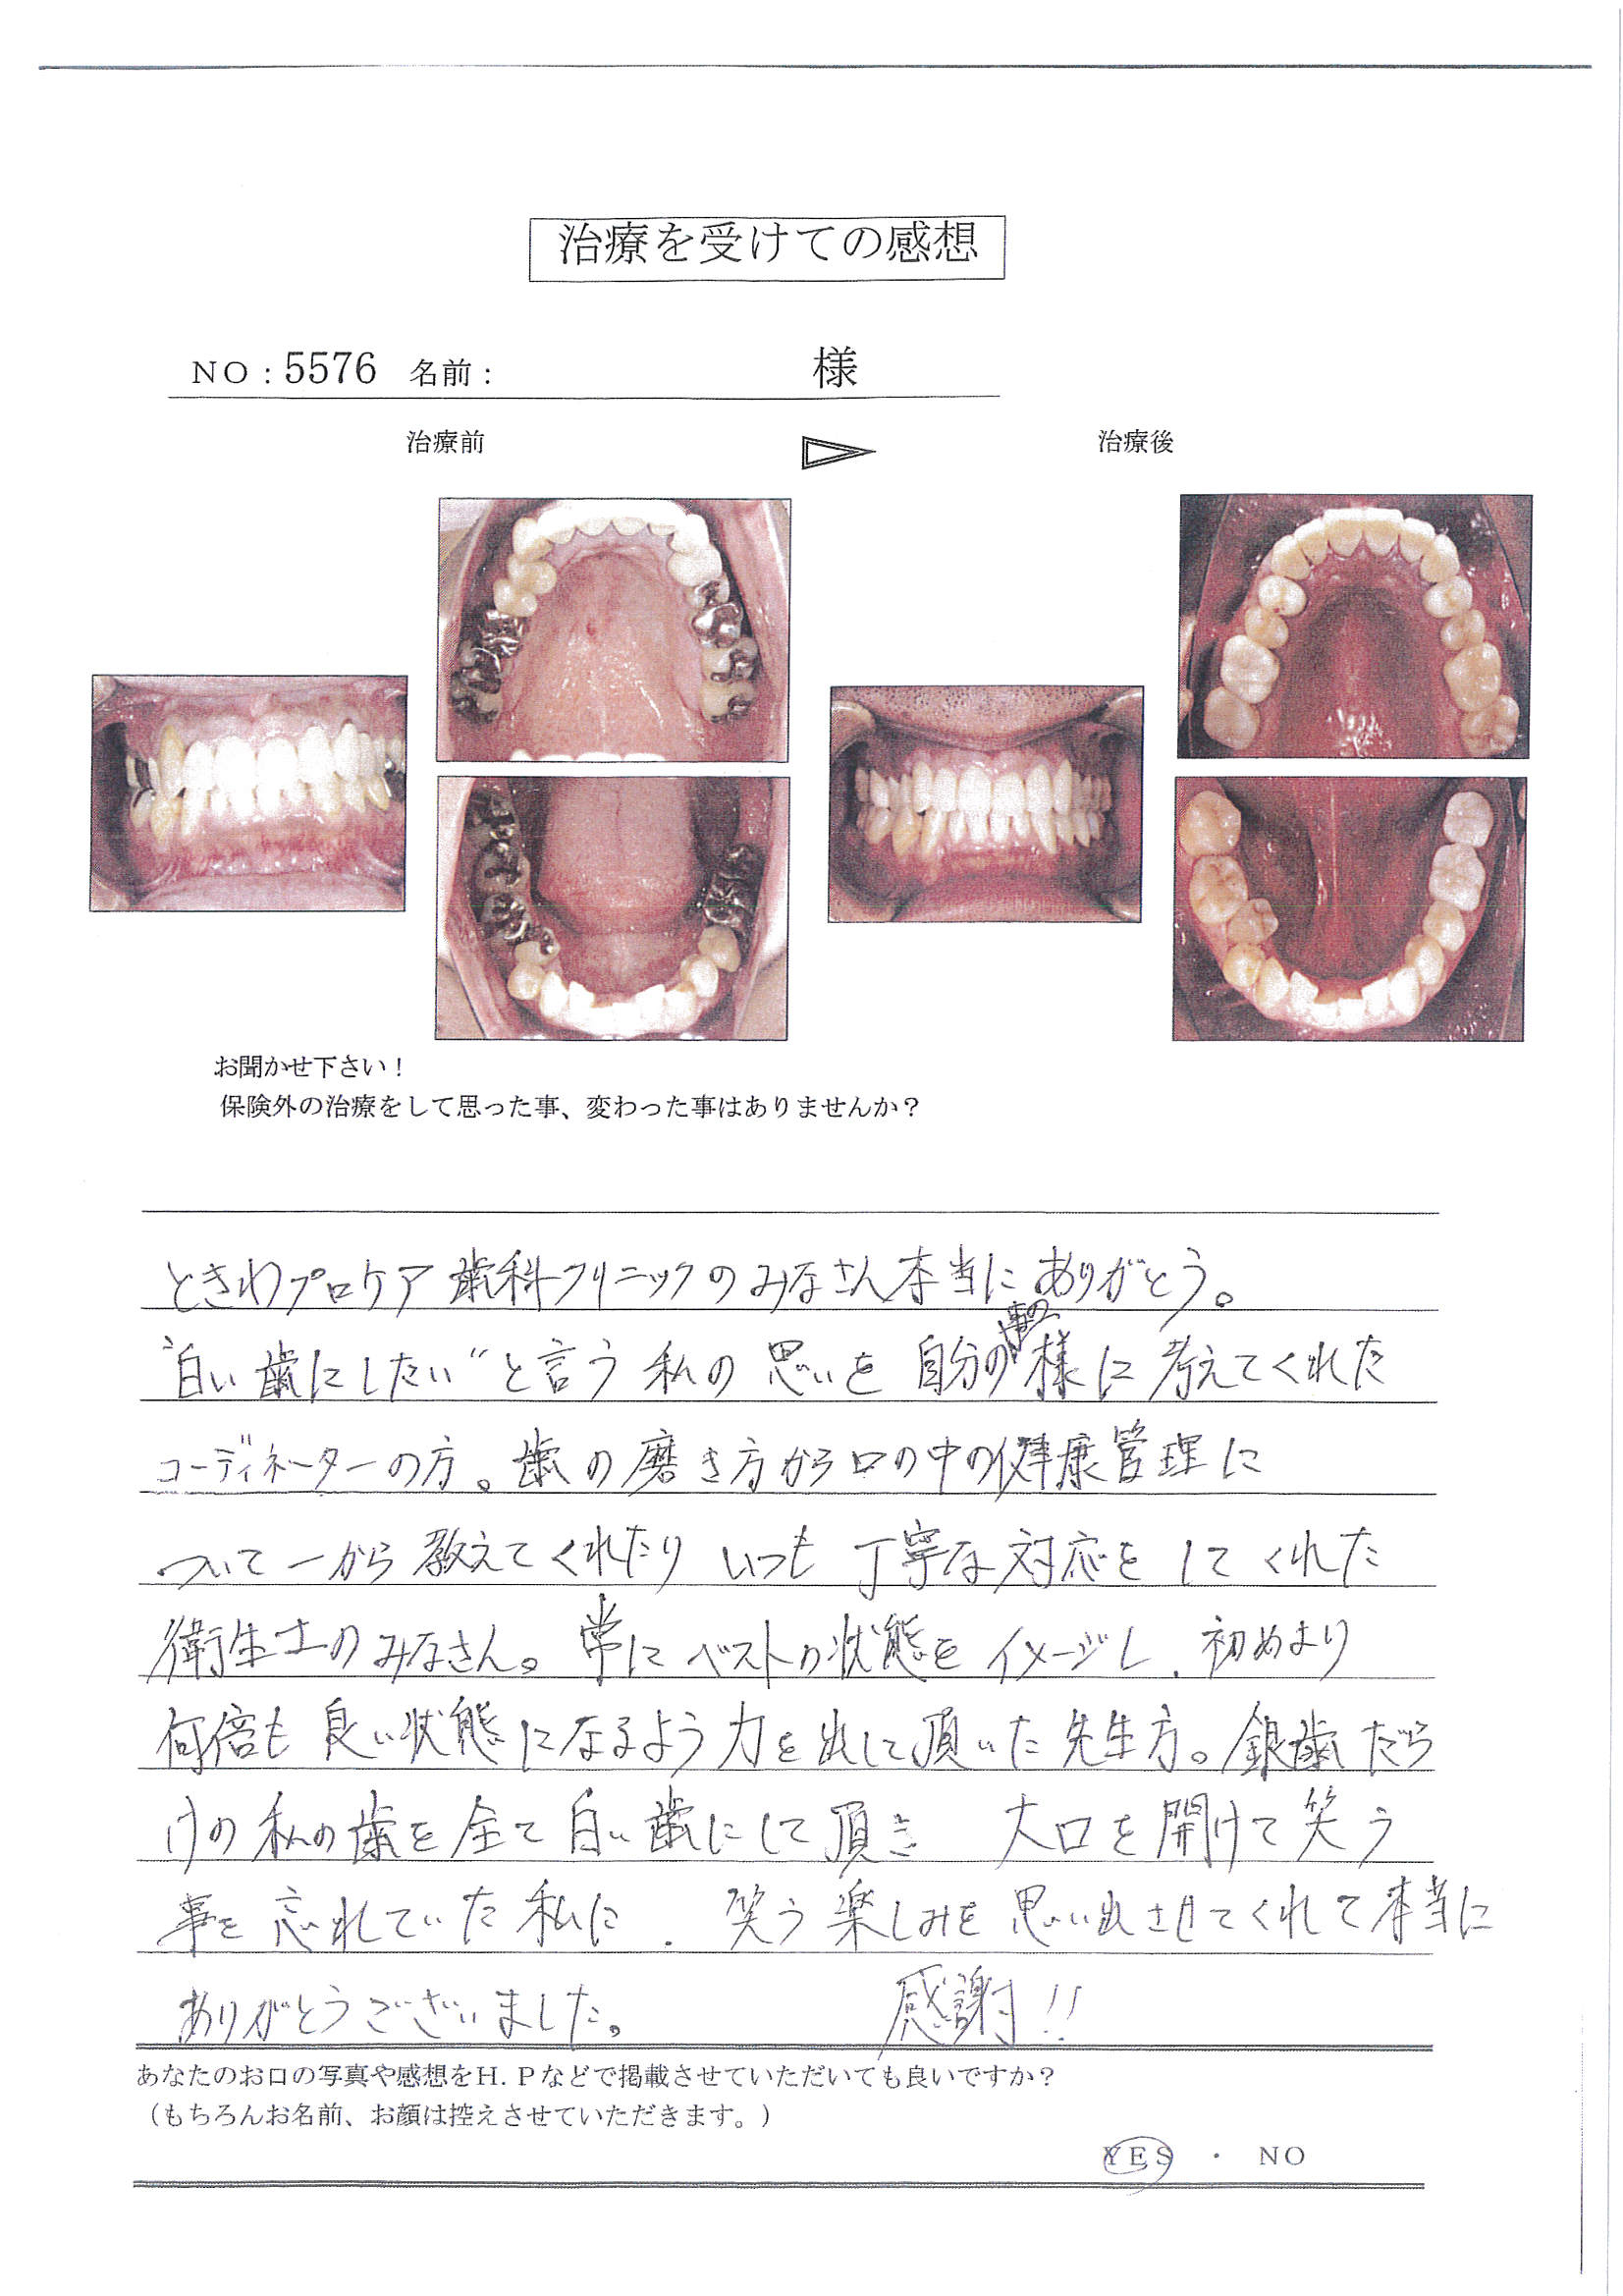 治療を受けての感想
NO:5576 名前: 様
治療前
治療後
お聞かせ下さい!
保険外の治療をして思った事、変わった事はありませんか?
ときわプロケア歯科クリニックのみなさん本当にありがとう。
"白い歯にしたい"と言う私の思いを自分の事の様に考えてくれた
コーディネーターの方。歯の磨き方から口の中の健康管理に
ついて一から教えてくれたりいつも丁寧な対応をしてくれた
衛生士のみなさん。常にベストの状態をイメージし、初めより
何倍も良い状態になるよう力を出して頂いた先生方。銀歯だら
けの私の歯を全て白い歯にして頂き 大口を開けて笑う
事を忘れていた私に、笑う楽しみを思い出させてくれて本当に
ありがとうございました。 感謝!!
あなたのお口の写真や感想をH.Pなどで掲載させていただいても良いですか?
(もちろんお名前、お顔は控えさせていただきます。)
YES ・ NO